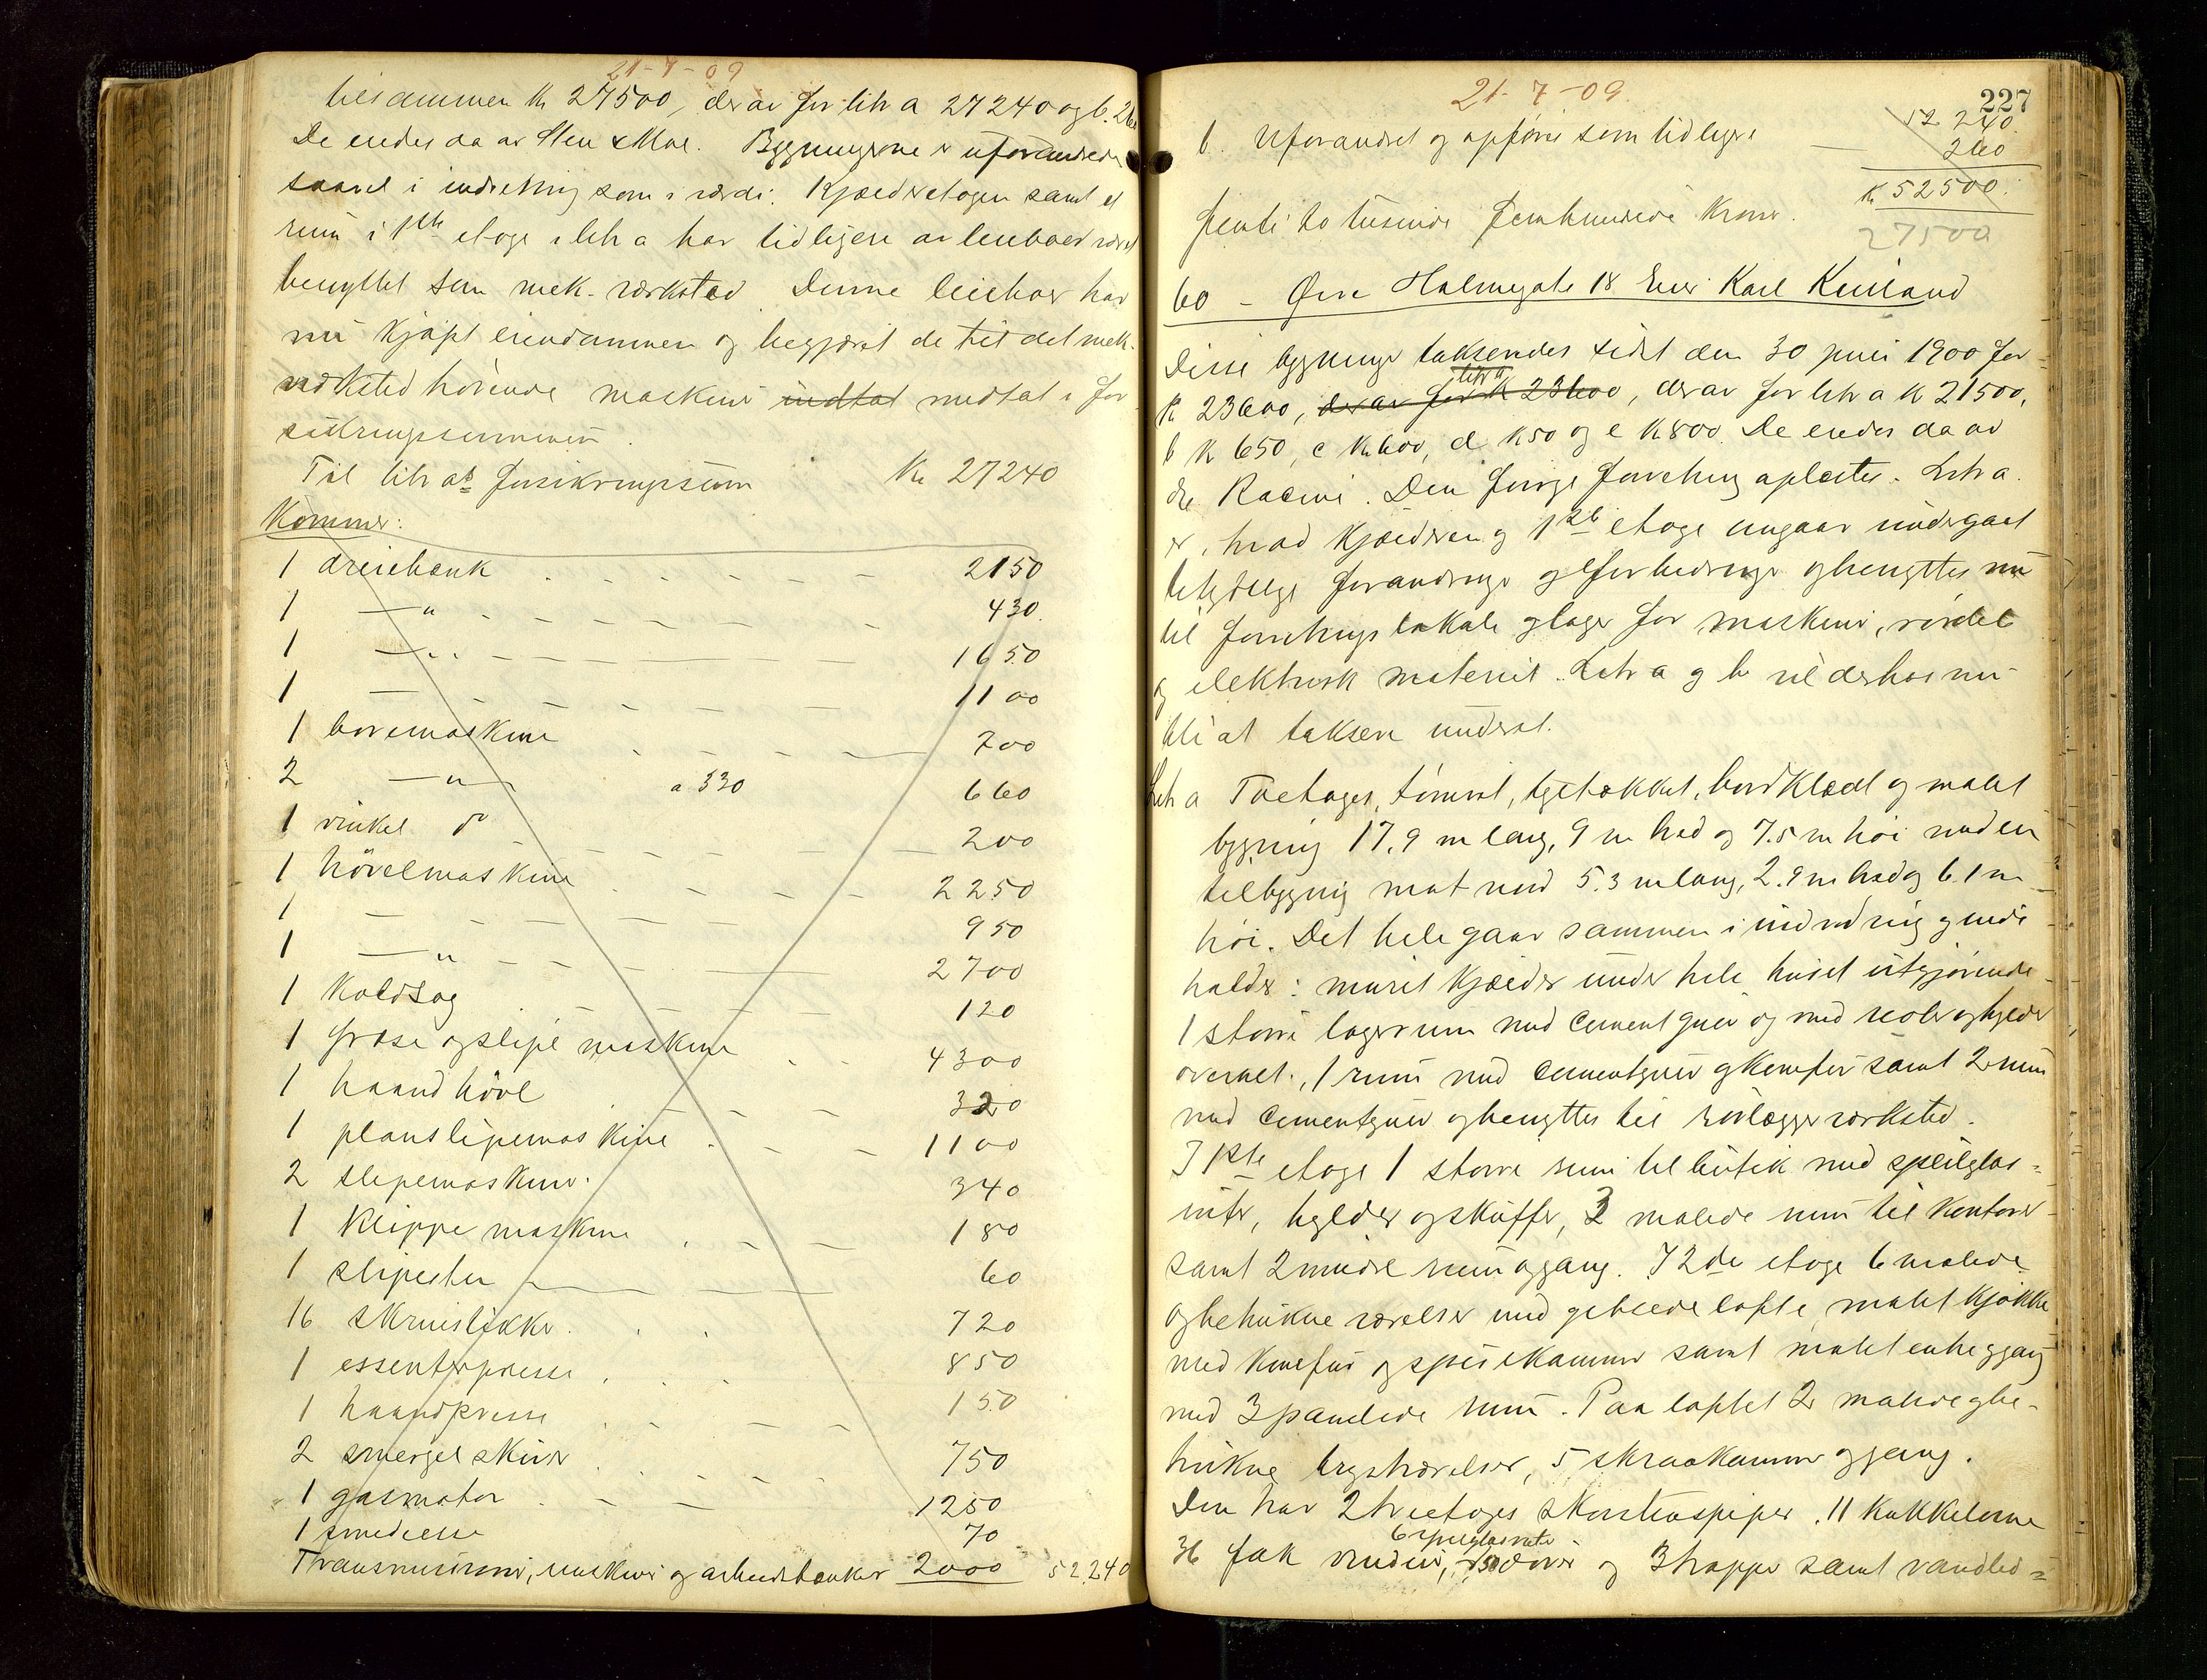 21-7-09
tilsammen Kr 27500, derav for litr a 27240 og b. 260
De eiedes da av Steen & Moe. Bygningerne er uforandrede
saavel i indretning som i værdi. Kjælderetagen samt et
rum i 1ste etage i litr a har tidligere av leieboer været
benyttet som mek. værksted. Denne leieboer har
nu kjøpt eiendommen og begjæret de til det mek.
verksted hørende maskiner indtat medtat i for-
sikringssummen.
Til litr a's forsikringssum Kr 27240
Kommer:
1 dreiebænk 2150
1 —"— 430
1 —"— 1650
1 — 1100
1 boremaskine 700
2 —"— a 330 660
1 vinkel do 200
1 høvelmaskine 2250
1 — 950
1 —"— 2700
1 Koldsag 120
1 fræse og slipe maskine 4300
1 haandhövl 320
1 planslipemaskine 1100
2 slipemaskiner 340
1 Klippe maskine 180
1 slipesten 60
16 skruestikker 720
1 essenterpresse 850
1 haandpresse 150
2 smergelskiver 750
1 gasmotor 1250
1 smedeesse 70
Transmissioner, maskiner og arbeidsbænker 2000 52.240
21-7-09
227
52 240.
b. Uforandret og opføres som tidligere — 260
Kr 52500.
femti to tusinde femhundrede Kroner.
27500
60 - Øvre Holmegate 18 Eier Karl Kielland
Disse bygninger taksertes sidst den 30 juni 1900 for
Kr 23600, derav for litr a K 23600, derav for litr a K 21500,
b K 650, c K 600, d K 50 og e K 800. De eiedes da av
Den forrige forretning oplæstes. Litr a.
er, hvad kjælderen og 1ste etage angaar undergaat
betydelige forandringer og forbedringer og benyttes nu
til forretningslokale og lager for maskiner, rørdele
og elektrisk materiel. Litr a og b vil derhos nu
bli at taksere under et.
Litr a Toetages, tømret, tegltækket, bordklædt og malet
bygning 17.9 m lang, 9 m bred og 7.5 m høi med en
tilbygning mot nord 5.3 m lang, 2.9 m bred og 6.1 m
høi. Det hele gaar sammen i indredning og inde-
holder: muret kjælder under hele huset utgjørende
1 større lagerrum med cementgulv og med reoler og hylder
overalt, 1 rum med cementgulv og komfur samt 2 rum
med cementgulv og benyttes til rørlæggerværksted.
I 1ste etage 1 større rum til butik med speilglas-
ruter, hylder og skuffer, 3 malede rum til kontorer
samt 2 mindre rum og gang. I 2den etage 6 malede
og betrukne værelser med gibsede lofte, malet kjøkken
med komfur og spisekammer samt malet entre og gang
med 3 panelede rum. Paa loftet 2 malede og be-
trukne brystværelser, 5 skraakammer og gang.
Den har 2 treetages skorstenspiper, 11 kakkelovne
36 fak vinduer, 6 speilglasruter dører og 3 trapper samt vandled-